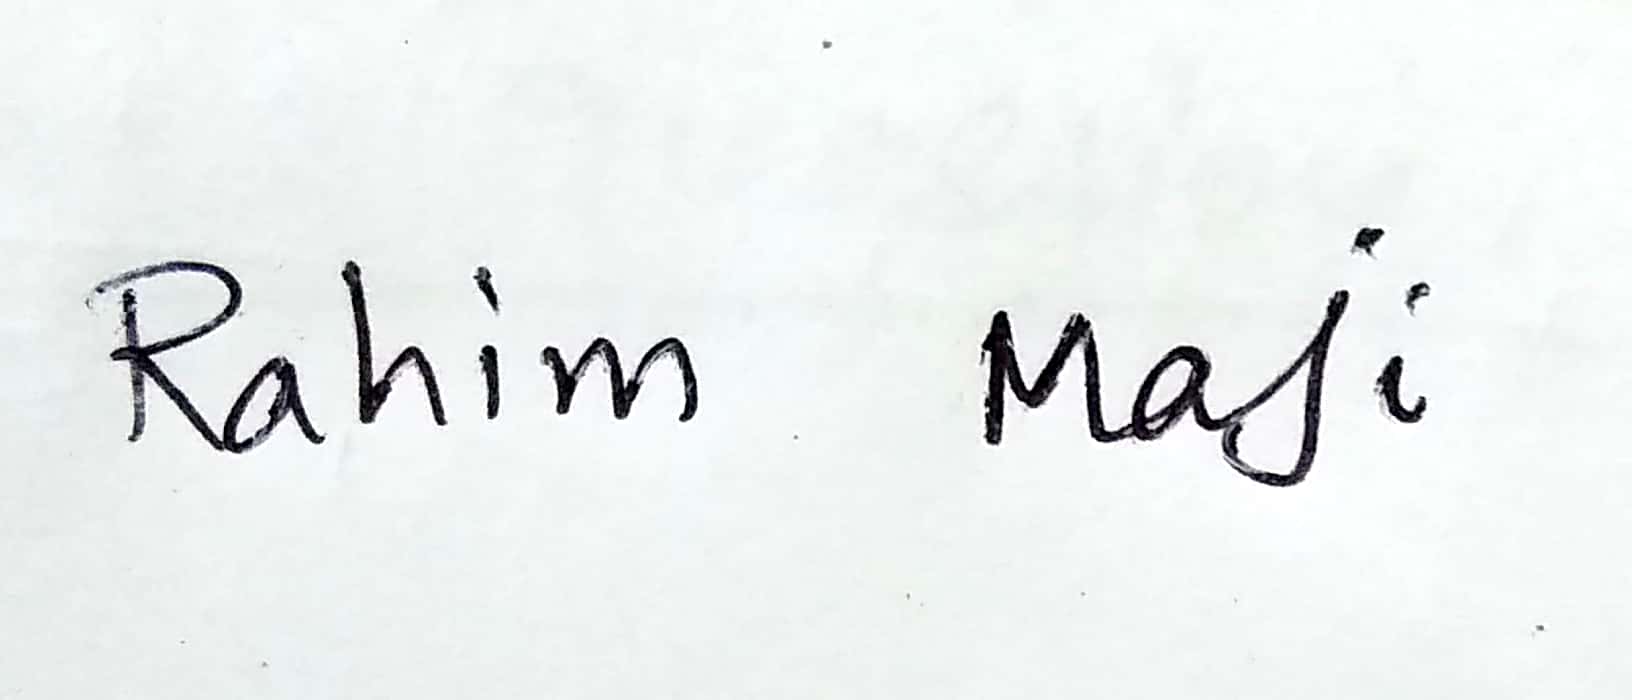 Rahim Maji